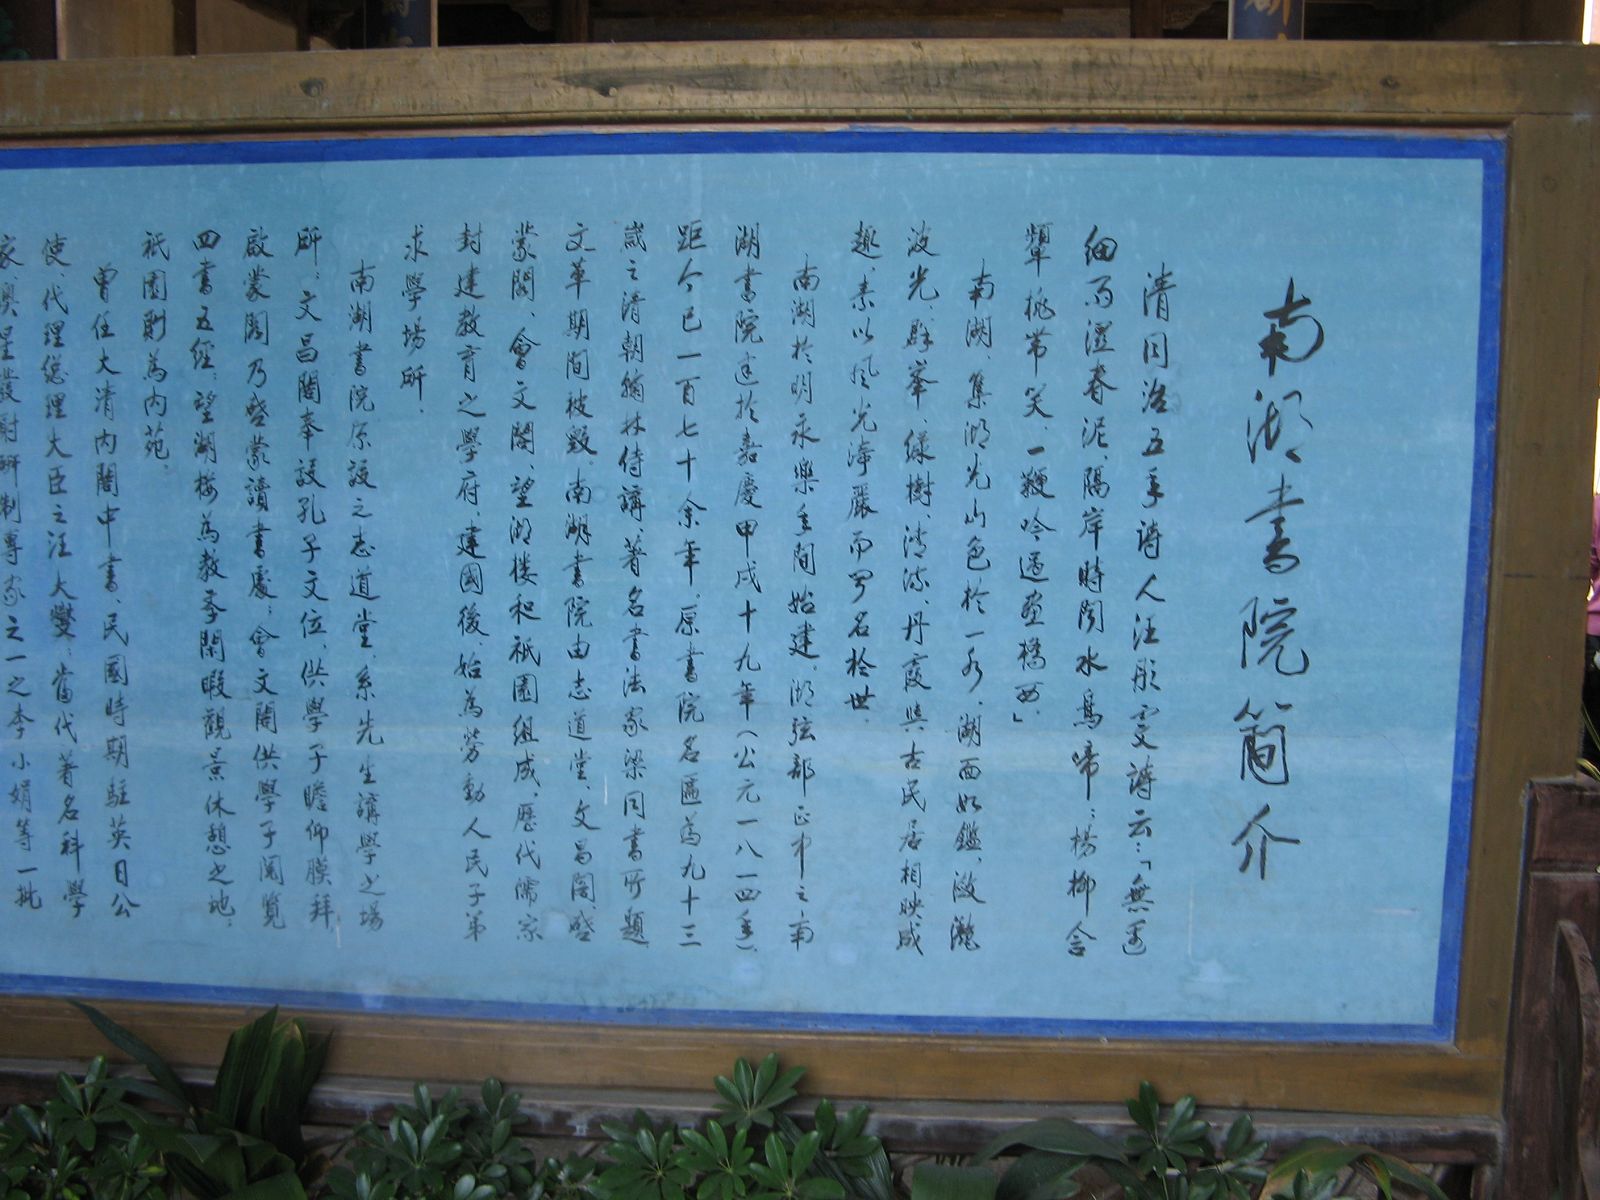 南湖書院簡介
清同治五年詩人汪彤雯詩云：「無邊
細雨濕春泥、隔岸時聞水鳥啼；楊柳含
顰桃帶笑、一鞭吟過畫橋西。」
南湖、集湖光山色於一身、湖面如鑑、瀲灧
波光、群峯、綠樹、清流、丹霞與古民居相映成
趣、素以風光漳麗而罗名於世。
南湖於明永樂年間始建。湖弦部正中之南
湖書院建於嘉慶甲戌十九年（公元一八一四年）、
距今已一百七十余年。原書院名匾為九十三
歲之清朝翰林侍講、著名書法家梁同書所題、
文革期間被毀。南湖書院由志道堂、文昌閣、啟
蒙閣、會文閣、望湖楼和祇園組成、歷代儒家
封建教育之學府、建國後、始為勞動人民子弟
求學場所。
南湖書院原設之志道堂、系先生講學之場
所；文昌閣奉設孔子文位、供學子瞻仰膜拜、
啟蒙閣乃啟蒙讀書處；會文閣供學子閱覽
四書五經；望湖樓為教學閑暇觀景休憩之地；
祇園則為內苑。
曾任大清內閣中書、民國時期駐英日公
使、代理總理大臣之汪大燮；當代著名科學
家、澳星發射研制專家之一之李小娟等一批